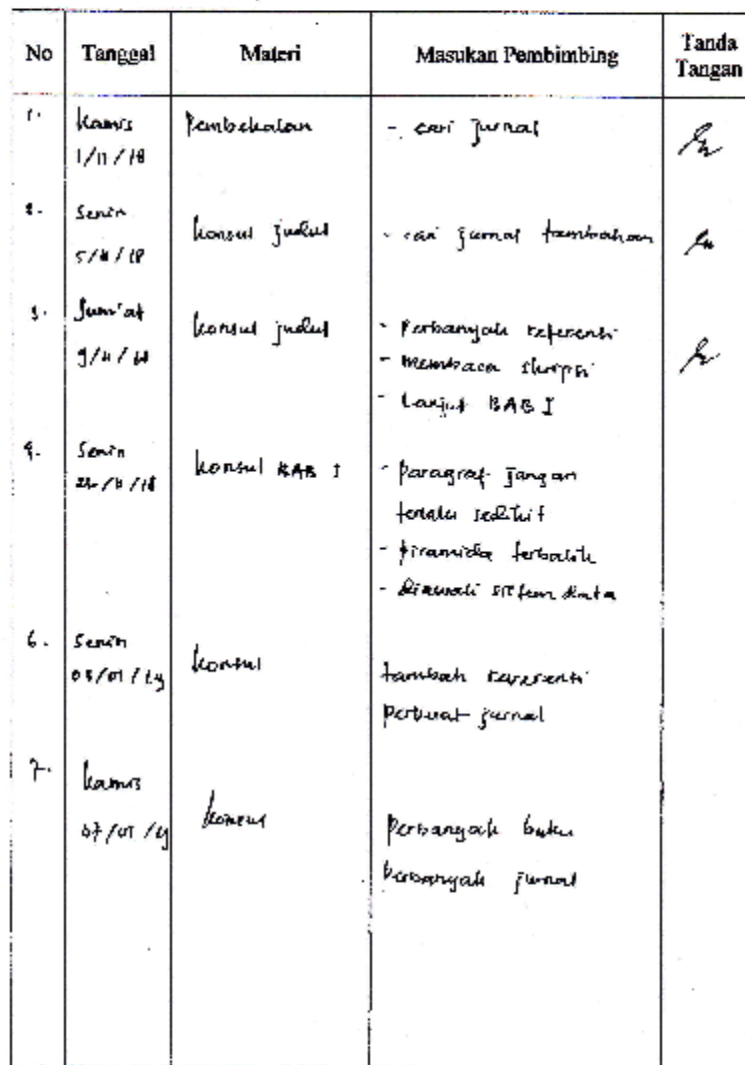 No Tanggal Materi Masukan Pembimbing Tanda Tangan
1. Kamis Pembekalan - cari jurnal
1/11/18
2. Senin konsul judul - cari jurnal tambahan
5/11/18
3. Jum'at konsul judul - Perbanyak referensi
9/11/18 - membaca skripsi
- Lanjut BAB I
Senin konsul BAB I - Paragraf jangan
terlalu sedikit
- Piramida terbalik
- diawali
6. Senin konsul tambah referensi
perkuat jurnal
7. Kamis konsul Perbanyak buku
Perbanyak jurnal